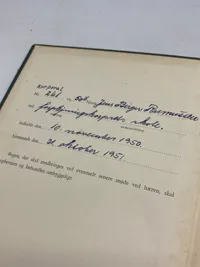 Korporal
Nr. 261 Jens Birger Rasmussen
ved forplejningskorpsets skole.
indkaldt den 10. november 1950.
hjemsendt den 31. oktober 1951.
Bogen, der skal medbringes ved eventuelt senere møde ved hæren, skal
opbevares og behandles omhyggeligt.